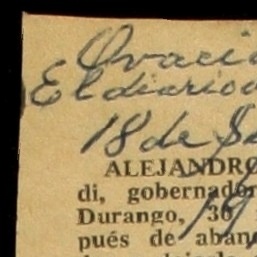 Ovaci
El diario
18 de
ALEJANDRO
di, gobernador
Durango, 36
pués de aban